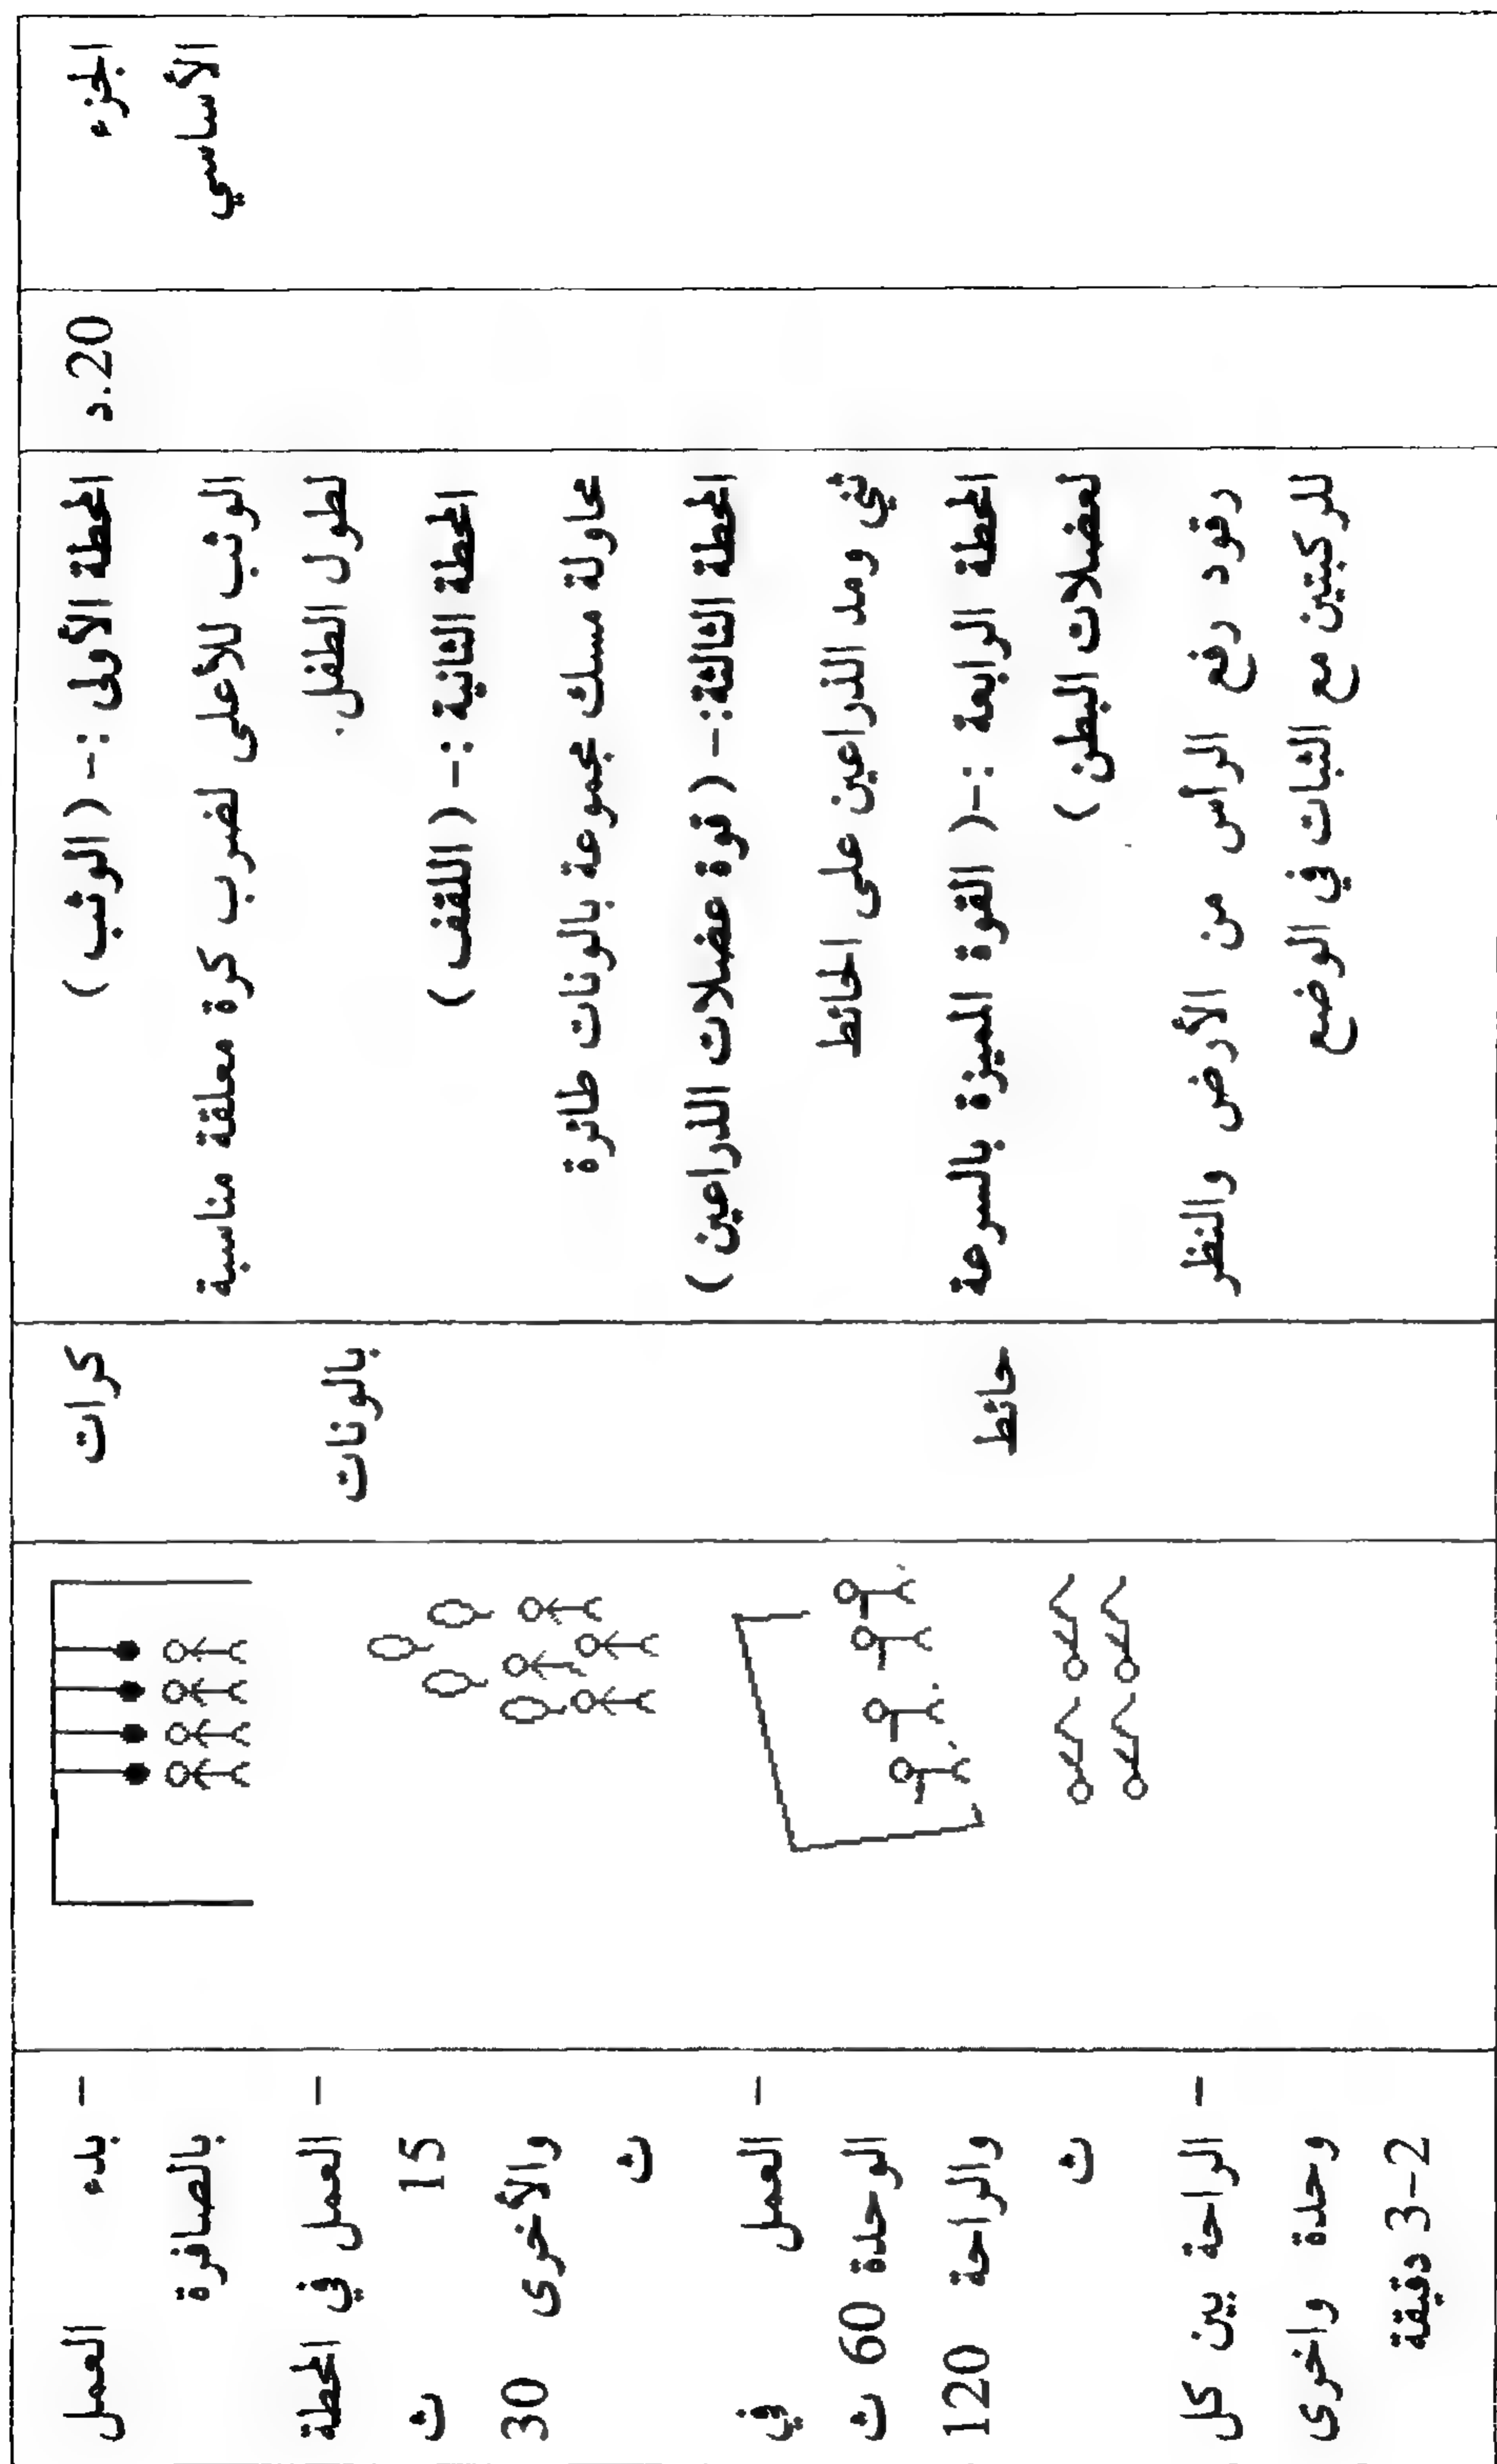 الجزء
الأساسي
20.د
المحطة الأولى :- ( الوثب )
الوثب للأعلى لضرب كرة معلقة مناسبة
لطول الطفل.
المحطة الثانية :- ( اللقف )
محاولة مسك مجموعة بالونات طائرة
المحطة الثالثة:- ( قوة عضلات الذراعين )
ثني ومد الذراعين على الحائط
المحطة الرابعة :-( القوة المميزة بالسرعة
لعضلات البطن )
رقود رفع الرأس من الأرض والنظر
للركبتين مع الثبات في الوضع
كرات
بالونات
حائط
- بدء العمل
بالصافرة
- العمل في المحطة
15 ث
والأخرى 30
ث
- العمل في
الوحدة 60 ث
والراحة 120
ث
- الراحة بين كل
وحدة واخرى
2-3 دقيقة